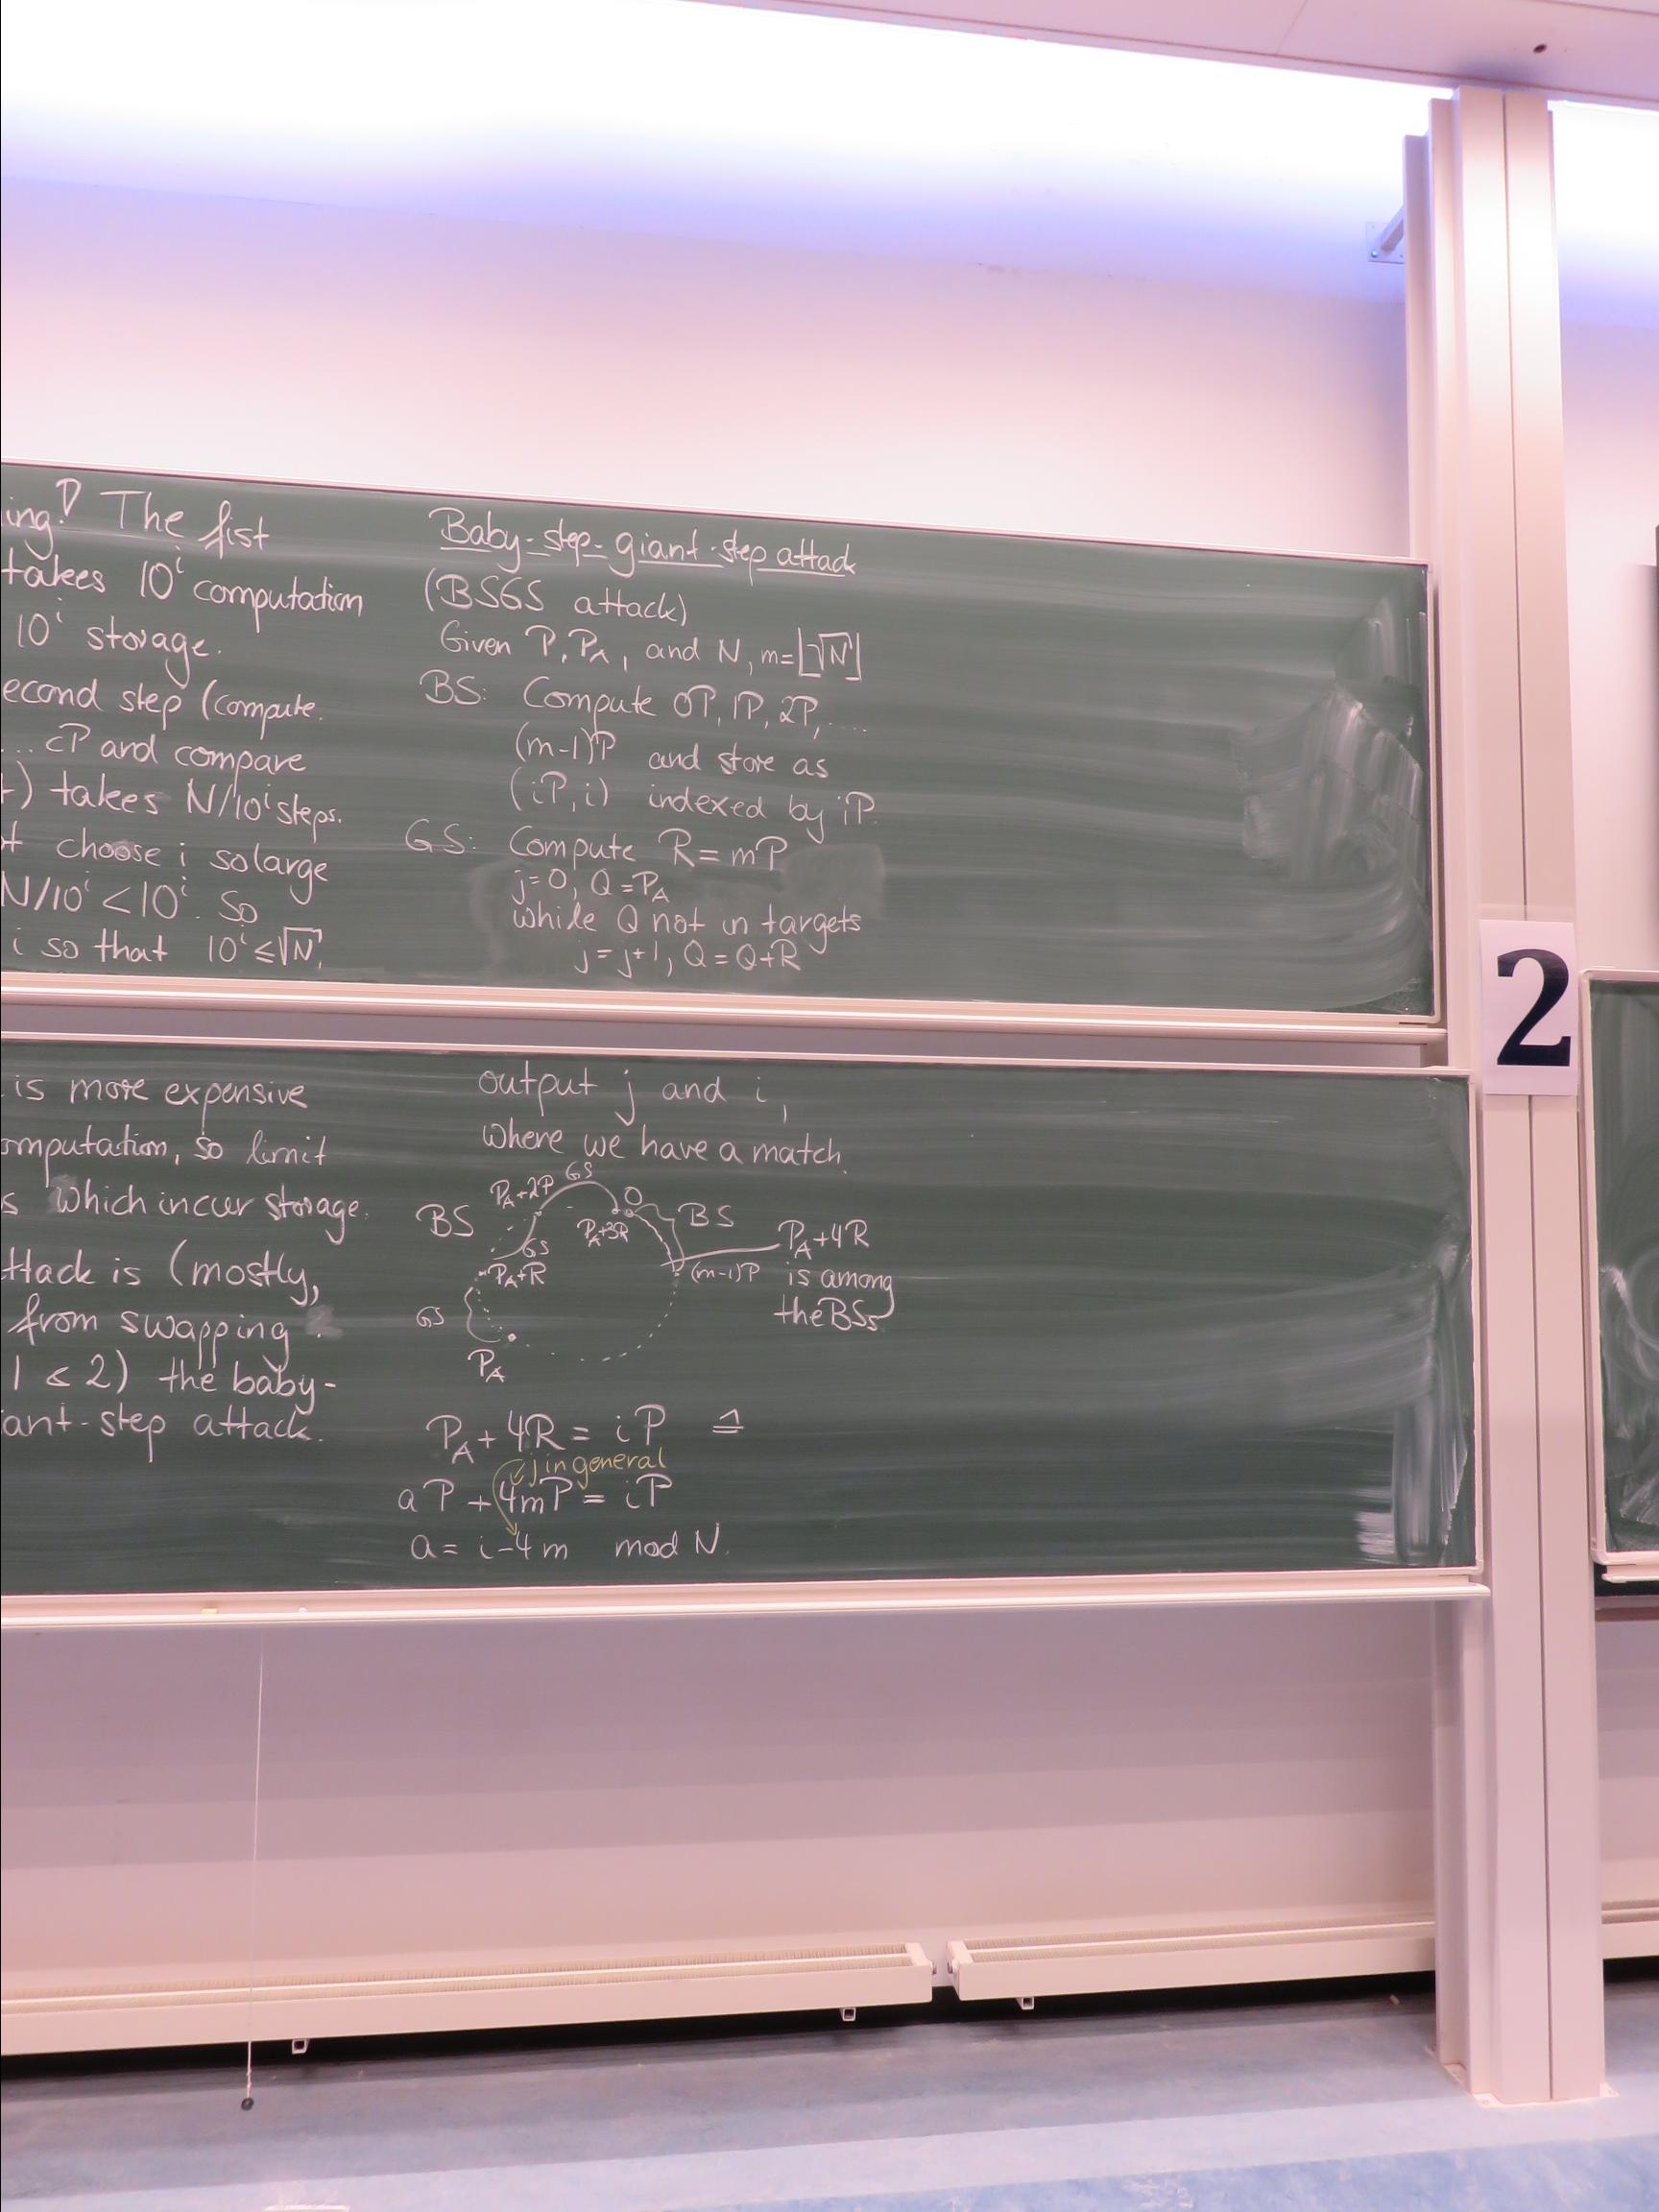 ing! The fist
takes 10^i computation
10^i storage.
econd step (compute
... cP and compare
) takes N/10^i steps.
choose i so large
N/10^i < 10^i. So
i so that 10^i ≤ √N.
Baby-step-giant-step attack
(BSGS attack)
Given P, P_A, and N, m=⌊√N⌋
BS: Compute 0P, 1P, 2P, ...
(m-1)P and store as
(iP, i) indexed by iP.
GS: Compute R = mP
j=0, Q=P_A
while Q not in targets
j=j+1, Q=Q+R
is more expensive
omputation, so limit
s which incur storage.
ttack is (mostly,
from swapping
1 & 2) the baby-
ant-step attack.
output j and i,
where we have a match.
P_A+2P GS
BS
0
P_A+3R
BS
P_A+4R
is among
the BSs
(m-1)P
GS
P_A+R
GS
P_A
P_A + 4R = iP ≙
j in general
aP + 4mP = iP
a = i-4m mod N.
2